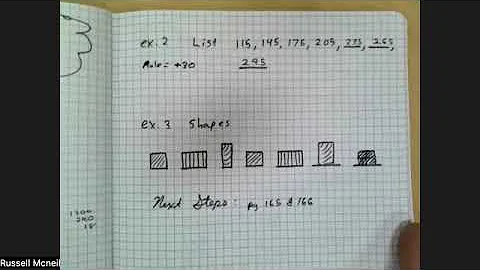 ex. 2 List 115, 145, 175, 205, 235, 265,
Rule = +30 295
ex. 3 Shapes
Next Steps: pg 165 & 166
Russell Mcneil